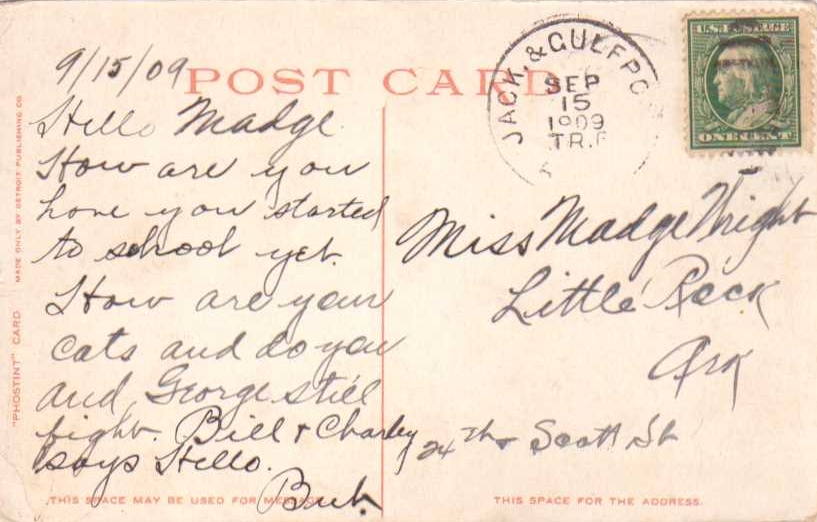 9/15/09
POST CARD
Hello Madge
How are you
have you started
to school yet.
How are your
cats and do you
and George still
fight. Bill & Charley
says Hello.
Bub.
JACK. & GULFPO
SEP
15
1909
TR.P
U.S. POSTAGE
ONE CENT
Miss Madge Wright
Little Rock
Ark
24 Th & Scott St
"PHOSTINT" CARD
MADE ONLY BY DETROIT PUBLISHING CO
THIS SPACE MAY BE USED FOR MESSAGE
THIS SPACE FOR THE ADDRESS.